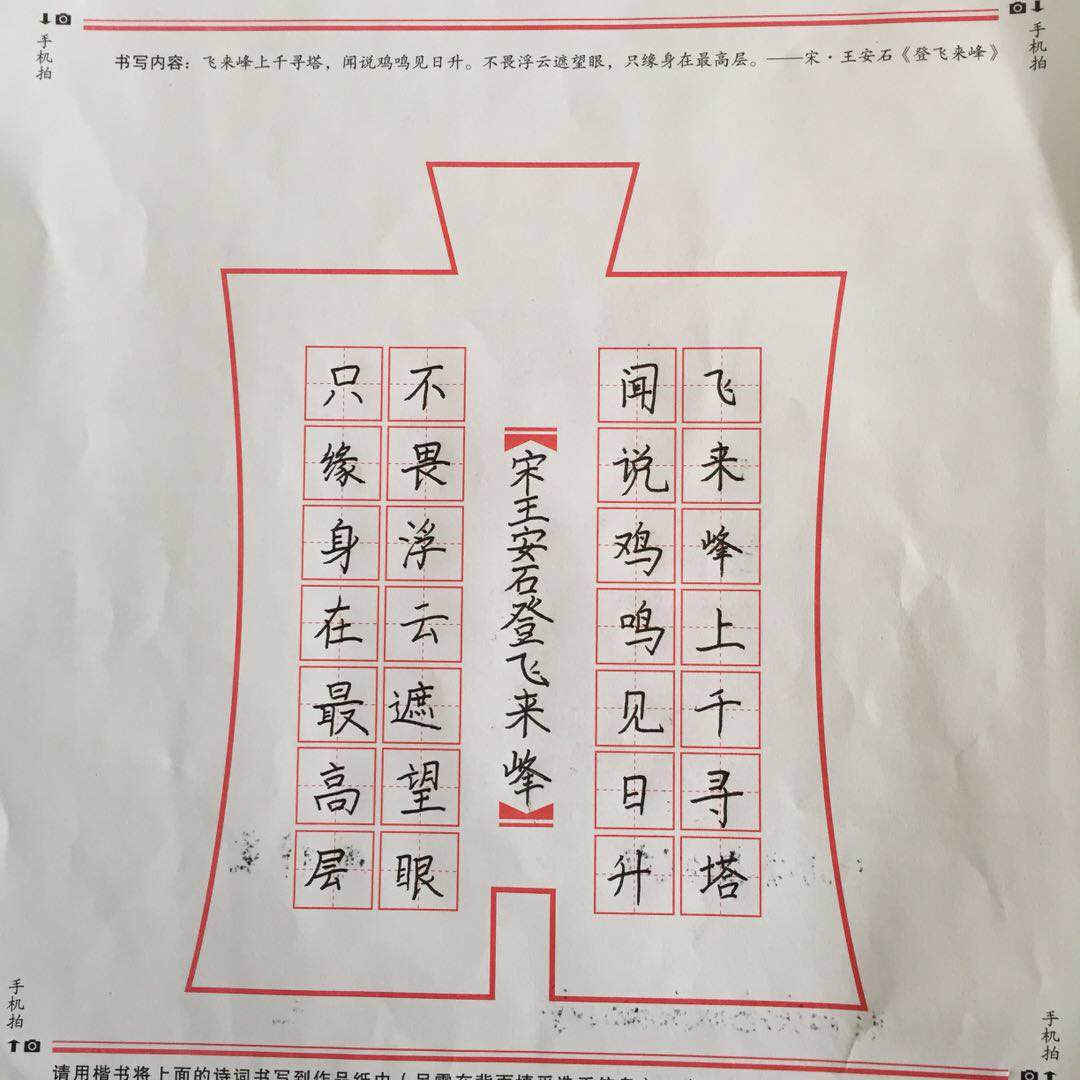 手机拍
手机拍
书写内容：飞来峰上千寻塔，闻说鸡鸣见日升。不畏浮云遮望眼，只缘身在最高层。——宋·王安石《登飞来峰》
飞来峰上千寻塔
闻说鸡鸣见日升
宋王安石登飞来峰
不畏浮云遮望眼
只缘身在最高层
手机拍
手机拍
请用楷书将上面的诗词书写到作品纸中